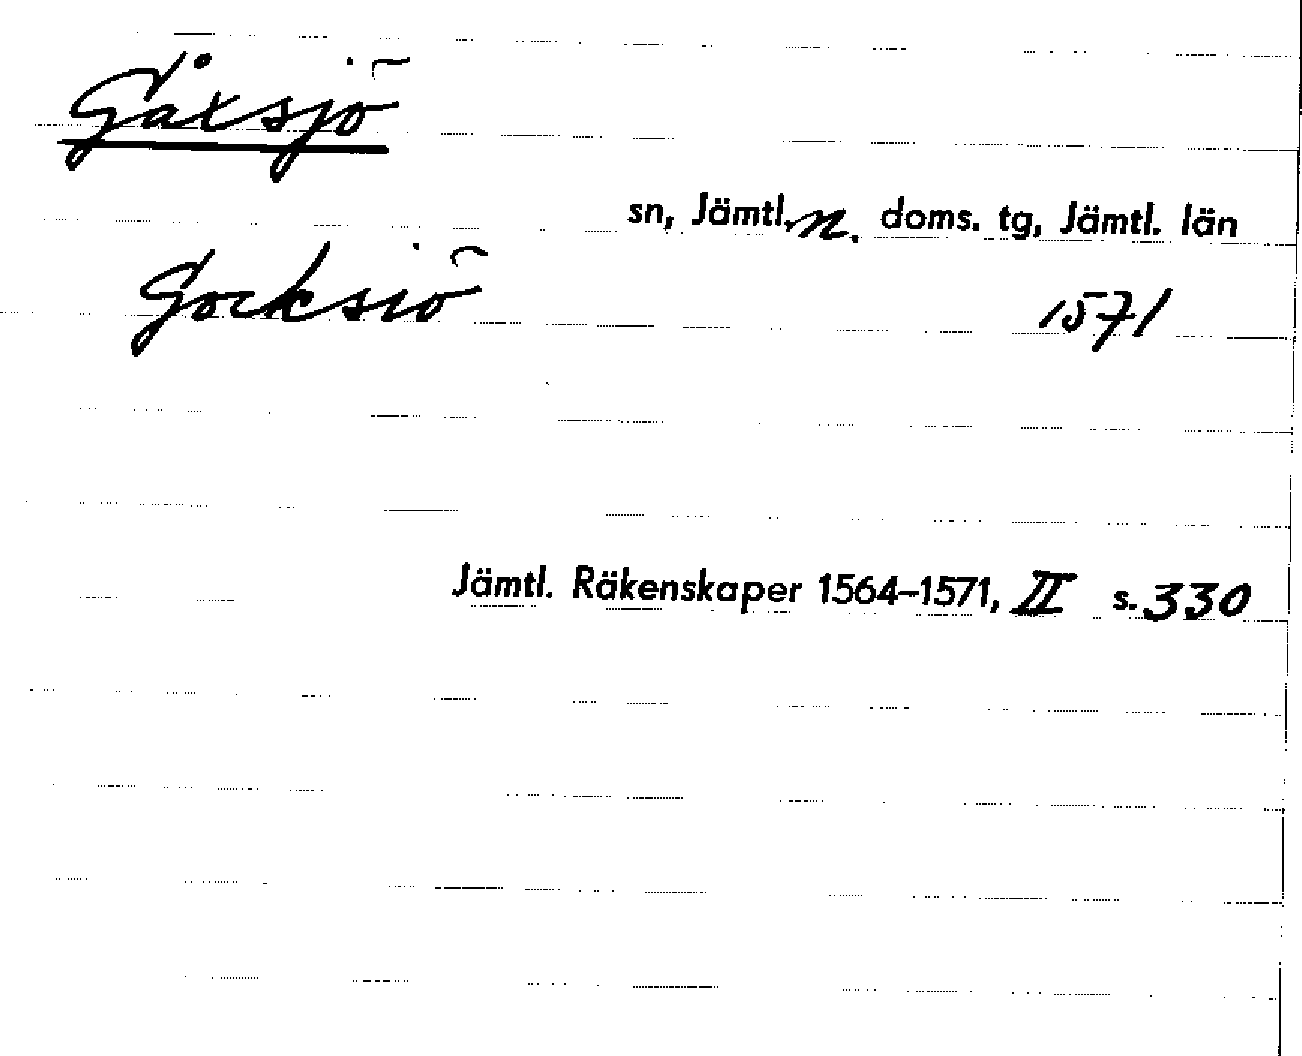 Gåxsjö
sn, Jämtl. n. doms. tg, Jämtl. län
Gocksiö 1571
Jämtl. Räkenskaper 1564–1571, II s. 330